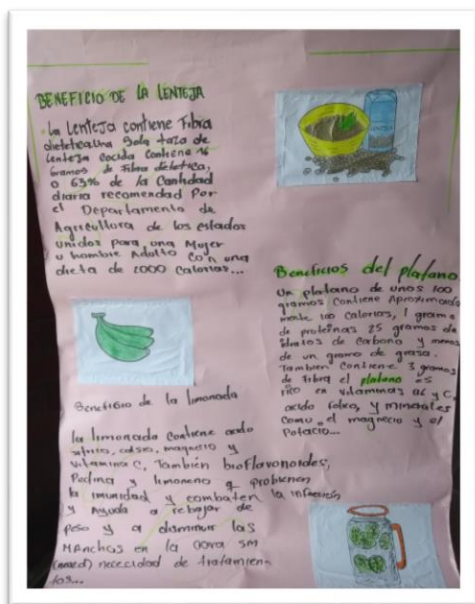 BENEFICIO DE LA LENTEJA
La Lenteja contiene Fibra
dietetica una Sola taza de
Lenteja Cocida Contiene 16
Gramos de Fibra dietetica,
o 63% de la Cantidad
diaria recomendad Por
el Departamento de
Agricultura de los estados
Unidos Para una Mujer
u hombre Adulto Con una
dieta de 2000 Calorias...
Beneficios del platano
Un platano de unos 100
gramos Contiene Aproximada
mente 100 Calorios, 1 gramo
de proteinas 25 gramos de
de Carbono y menos
de un gramo de grasa.
Tambien Contiene 3 gramos
de Fibra el platano es
rico en vitaminas B6 y C,
acido folico, y minerales
Como el magnecio y el
Potacio...
Beneficio de la limonada
la limonada Contiene
calsio, magnecio y
Vitamina C, También bioflavonoides,
Pectina y limoneno q
la imunidad y combaten la infección
y Ayuda a rebajar de
Peso y a disminuir las
MAnchas en la
nececidad de tratamien-
tos...